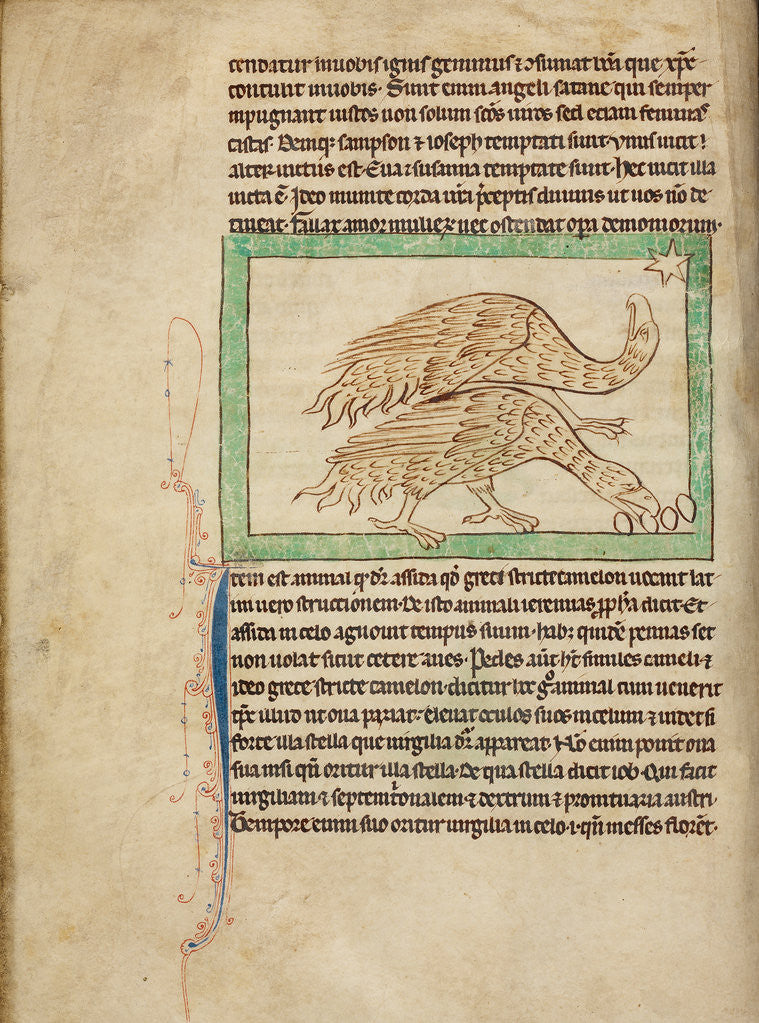 cendatur in uobis ignis geminus ⁊ ɔsumat bõa que xp̃c
contulit in uobis. Sunt enim angeli satane qui semper
inpugnant iustos non solum sc̃os uiros sed eciam feminas
castas. Deniq; sampson ⁊ ioseph temptati sunt. vnus uicit ⁊
alter uictus est. Eua ⁊ susanna temptate sunt. hec uicit illa
uicta ẽ. Ideo munite corda ur̃a p̃ceptis diuinis ut uos nõ de
tineat. fallax amor mulieꝝ nec ostendat opa demoniorum.
Item est animal q̃ dr̃ assida qđ greci stricte camelon uocant lat
ini uero structionem. De isto animali ieremias ꝓph̃a dicit. Et
assida in celo agnouit tempus suum. habꝫ quidẽ pennas set
non uolat sicut cetere aues. Pedes aũt hr̃ similes cameli. ⁊
ideo grece stricte camelon. dicitur hoc gͦ animal cum uenerit
tp̃c illud ut oua pariat. eleuat oculos suos in celum ⁊ uidet si
forte illa stella que uirgilia dr̃ appareat. Nõ enim ponit oua
sua nisi qñ oritur illa stella. De qua stella dicit iob. Qui facit
uirgiliam. ⁊ septemtrionalem. ⁊ dextrum ⁊ promtuaria austri.
Tempore enim suo oritur uirgilia in celo. i. qñ messes florẽt.